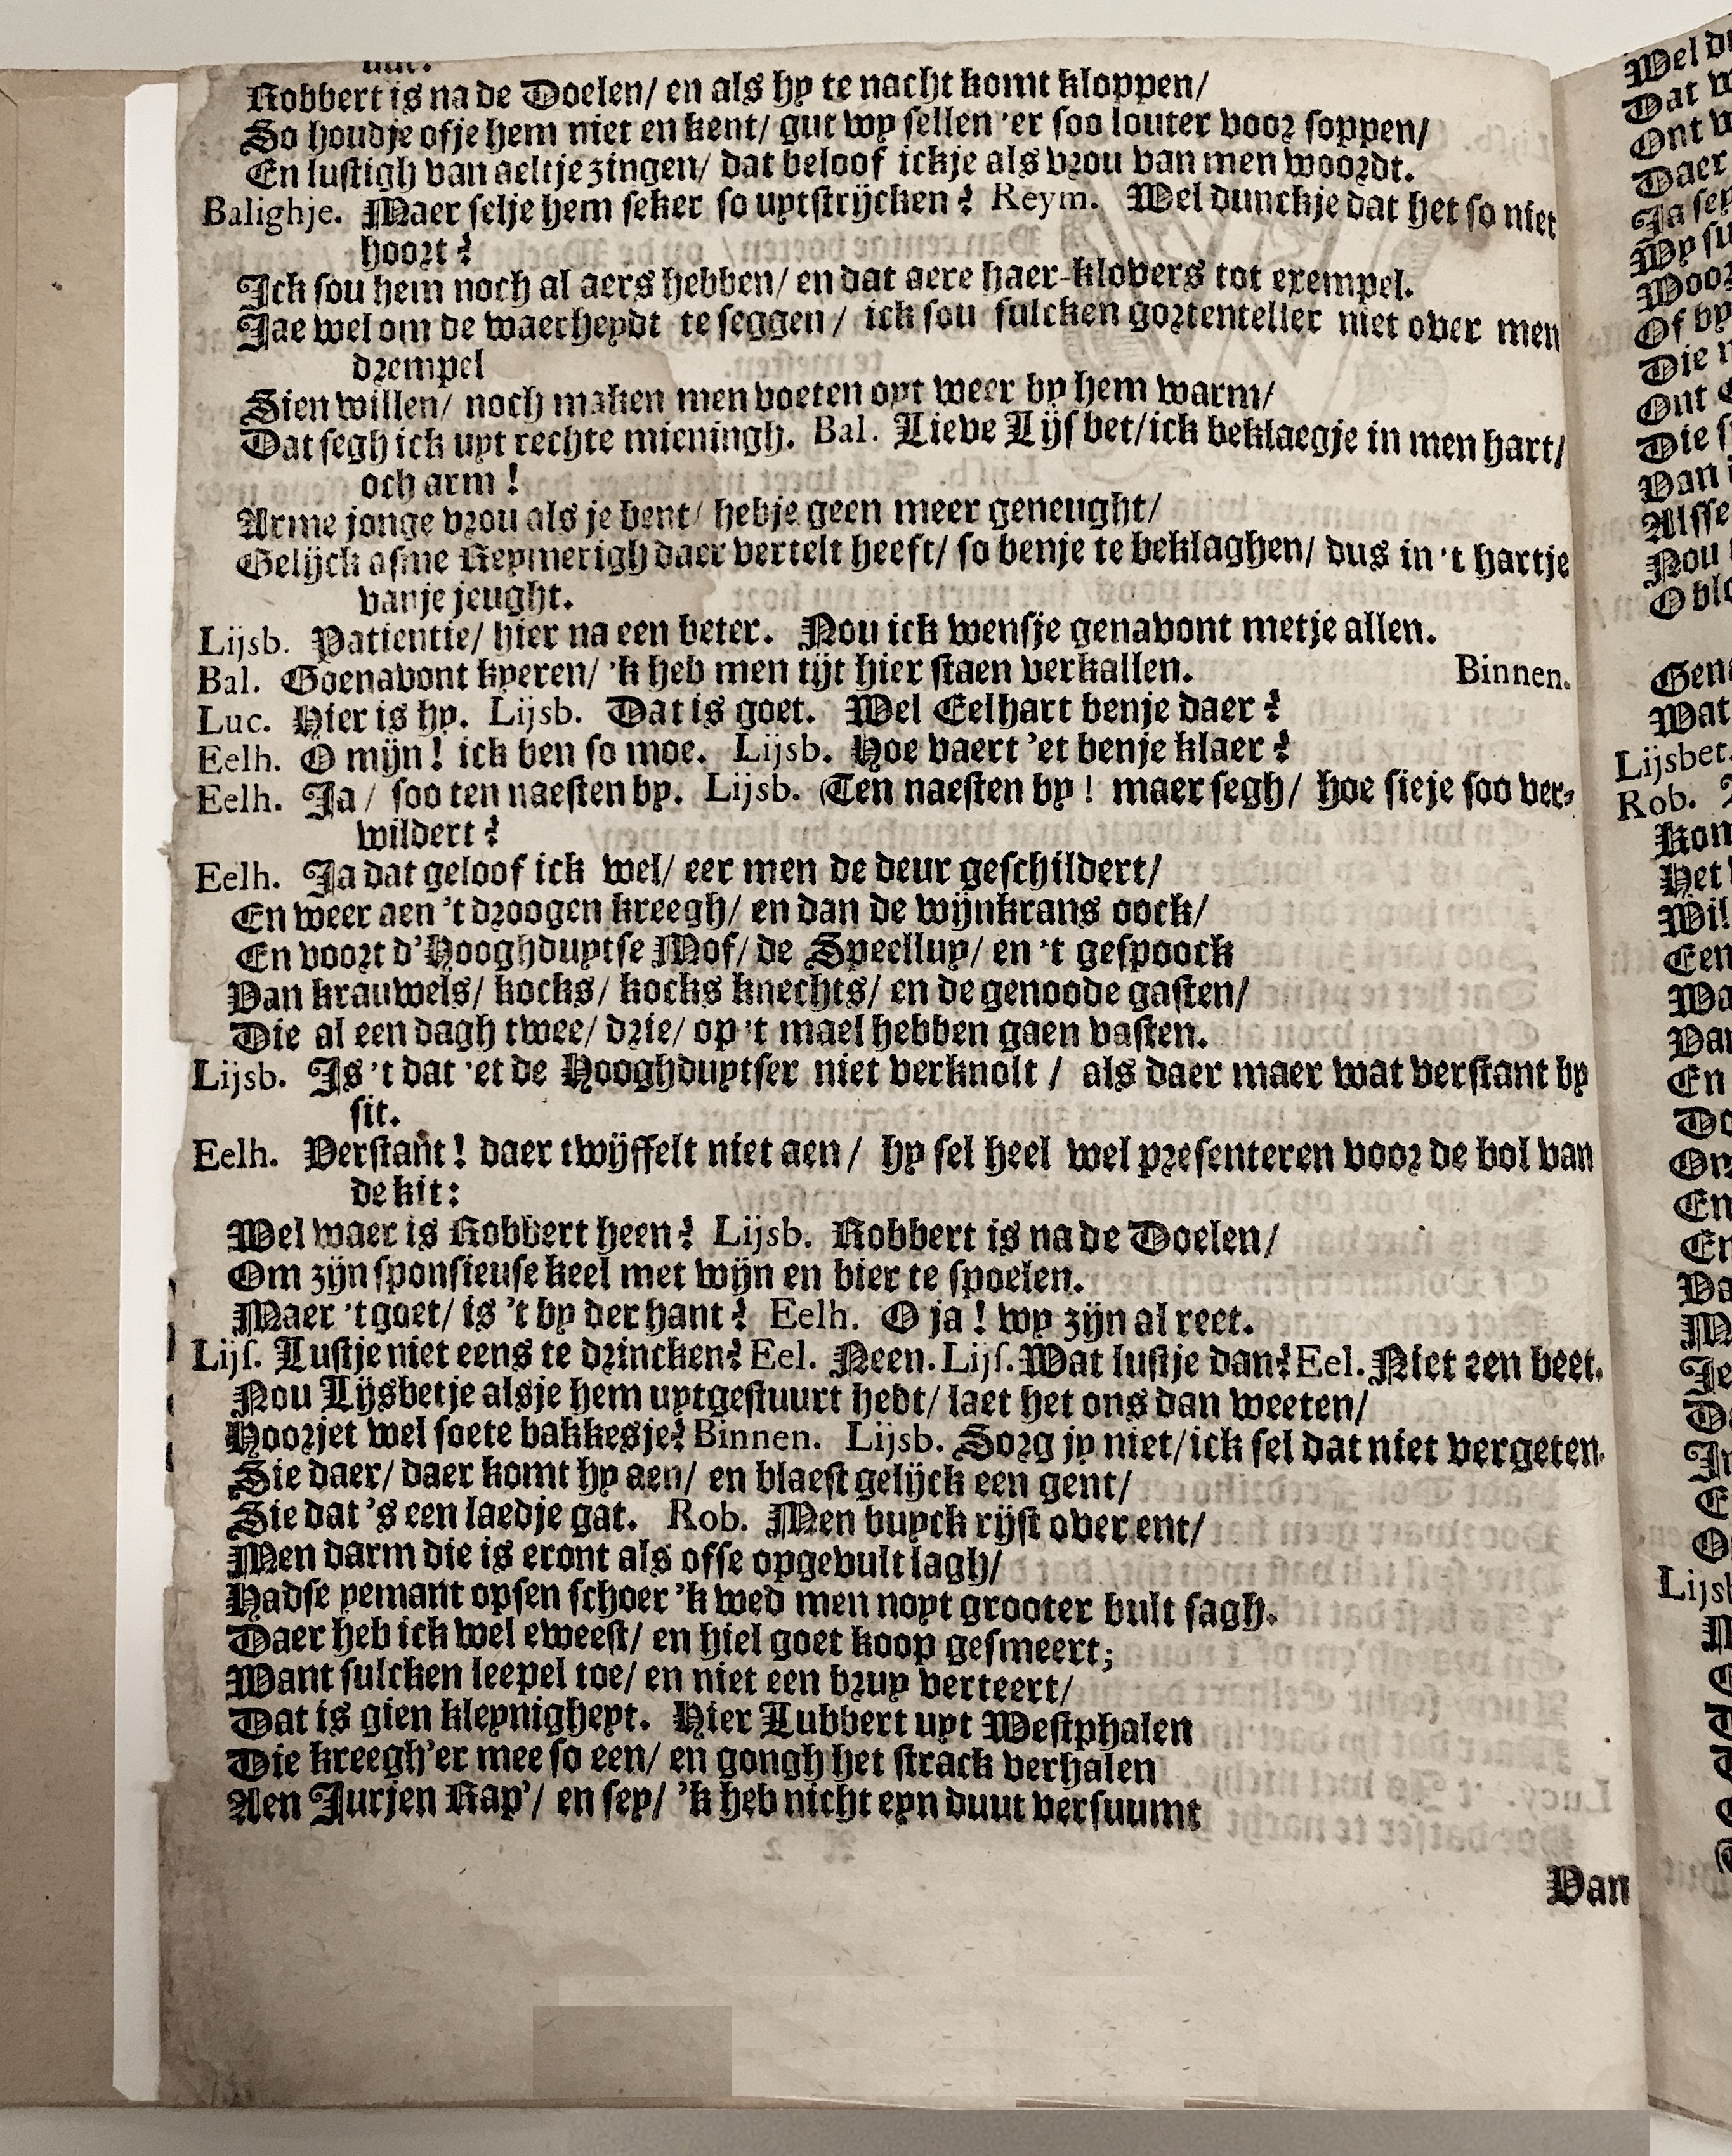 Robbert is na de Doelen/ en als hy te nacht komt kloppen/
So houdje ofje hem niet en kent/ gut wy sellen 'er soo louter voor soppen/
En lustigh van aeltje zingen/ dat beloof ickje als vrou van men woordt.
Balighje. Maer selje hem seker so uytstrijcken? Reym. Wel dunckje dat het so niet
hoort?
Ick sou hem noch al aers hebben/ en dat aere haer-klovers tot exempel.
Jae wel om de waerheydt te seggen/ ick sou sulcken gortenteller niet over men
drempel
Sien willen/ noch maken men voeten oyt weer by hem warm/
Dat segh ick uyt rechte mieningh. Bal. Lieve Lijsbet/ick beklaegje in men hart/
och arm!
Arme jonge vrou als je bent/ hebje geen meer geneught/
Gelijck asme Reymerigh daer vertelt heeft/ so benje te beklaghen/ dus in 't hartje
vanje jeught.
Lijsb. Patientie/ hier na een beter. Nou ick wensje genavont metje allen.
Bal. Goenavont kyeren/ 'k heb men tijt hier staen verkallen. Binnen.
Luc. Hier is hy. Lijsb. Dat is goet. Wel Eelhart benje daer?
Eelh. O mijn! ick ben so moe. Lijsb. Hoe vaert 'et benje klaer?
Eelh. Ja/ soo ten naesten by. Lijsb. (Ten naesten by! maer segh/ hoe sieje soo ver-
wildert?
Eelh. Ja dat geloof ick wel/ eer men de deur geschildert/
En weer aen 't droogen kreegh/ en dan de wijnkrans oock/
En voort d'Hooghduytse Mof/ de Speelluy/ en 't gespoock
Van krauwels/ kocks/ kocks knechts/ en de genoode gasten/
Die al een dagh twee/ drie/ op 't mael hebben gaen vasten.
Lijsb. Is 't dat 'et de Hooghduytser niet verknolt/ als daer maer wat verstant by
sit.
Eelh. Verstant! daer twijffelt niet aen/ hy sel heel wel presenteren voor de bol van
de kit:
Wel waer is Robbert heen? Lijsb. Robbert is na de Doelen/
Om zijn sponsieuse keel met wijn en bier te spoelen.
Maer 't goet/ is 't by der hant? Eelh. O ja! wy zijn al reet.
Lijs. Lustje niet eens te drincken? Eel. Neen. Lijs. Wat lustje dan? Eel. Niet een beet.
Nou Lijsbetje alsje hem uytgestuurt hebt/ laet het ons dan weeten/
Hoorjet wel soete bakkesje? Binnen. Lijsb. Sorg jy niet/ick sel dat niet vergeten.
Sie daer/ daer komt hy aen/ en blaest gelijck een gent/
Sie dat 's een laedje gat. Rob. Men buyck rijst over ent/
Men darm die is eront als offe opgevult lagh/
Hadse yemant opsen schoer 'k wed men noyt grooter bult sagh.
Daer heb ick wel eweest/ en hiel goet koop gesmeert;
Want sulcken leepel toe/ en niet een bruy verteert/
Dat is gien kleynigheyt. Hier Lubbert uyt Westphalen
Die kreegh'er mee so een/ en gongh het strack verhalen
Aen Jurjen Rap'/ en sey/ 'k heb nicht eyn duut versuumt
Van
Lijsbet.
Rob.